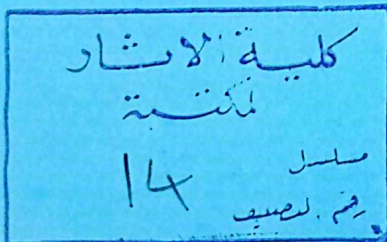 كلية الاثار
مكتبة
مسلسل
14
رقم التصنيف